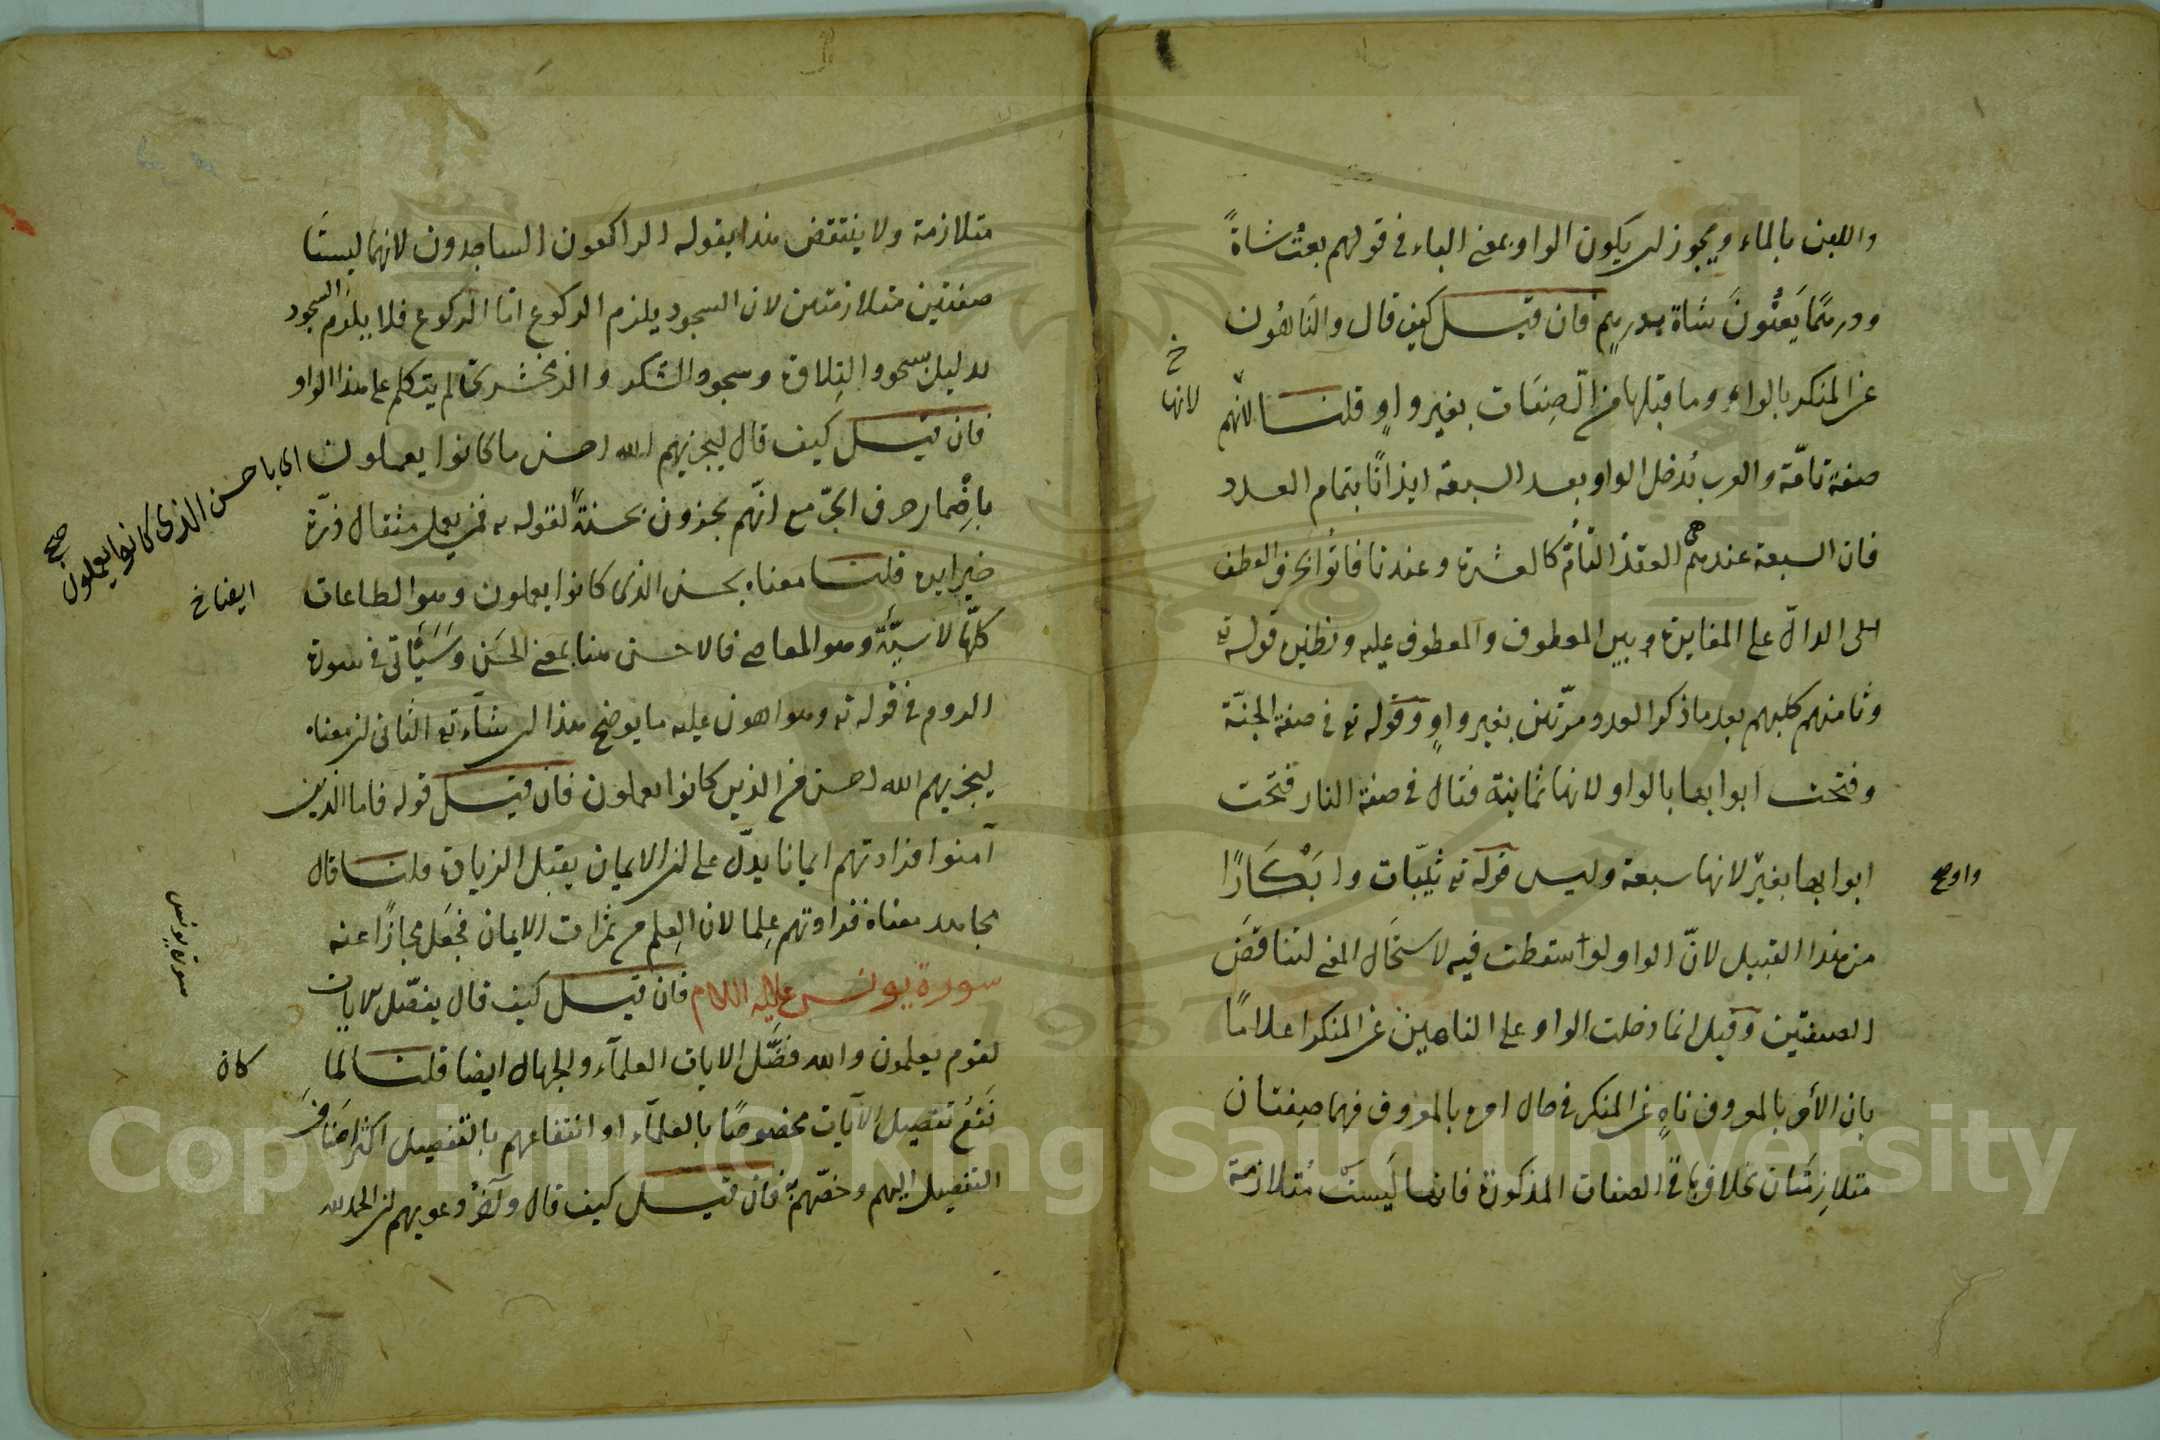 واللبن بالماء ويجوز ان يكون الواو بمعنى الباء في قولهم بعت شاةً
ودرهمًا يَعْنُونَ شاة بدرهم فان قيل كيف قال والنَاهُون
خ
لانها
عن المنكر بالواو وما قبلها من الصِفَات بغير واوٍ قلنا لانهم
صفة تامّة والعرب تُدخل الواو بعد السبعة ايذانًا بتمام العدد
فان السبعة عندهم هى العقد التامُ كالعشرة وعندنا فاتوا بحرف العطف
الدالّ على المغايرة بين المعطوف والمعطوف عليه ونظيره قوله تع
وثامنهم كلبهم بعد ما ذكر العدد مرّتين بغير واوٍ وقوله تع في صفة الجنّة
وفتحت ابوابها بالواو لانها ثمانية فقال في صفة النار فتحت
ابوابها بغير لانها سبعة وليس قوله تع ثيّبات وابْكَارًا
واو صح
من هذا القبيل لانّ الواو لو اسقطت فيه لاستحَال المعنى لتناقضَ
الصفتين وقيل انما دخلت الواو على الناهين عن المنكر اعلامًا
بان الأمر بالمعروف ناهٍ عن المنكر في حال امره بالمعروف فهما صِفتان
متلازِمَتَان بخلاف باقى الصفات المذكورة فانها لَيسَتْ مُتلازمة
متلازمة ولا ينتقض هذا بقوله الراكعون الساجدون لانهما ليستَا
صفتين متلازمتين لان السجود يلزم الركوع امّا الركوع فلا يلزم السجود
بدليل سجود التِلاوة وسجود الشكر والزمخشرىّ لم يتكلم على هذا الواو
فان قيل كيف قال ليجزيهم الله احسن ما كانوا يعملون
اى باحسن الذى كانوا يعملون
صح
باِضْمار حرف الجرّ مع انّهم يجزون بحسنةً لقوله تع فمن يعمل مثقال ذرّة
خيرا يره قلنا معناه بحسن الذى كانوا يعملون وهو الطاعات
ايضا خ
كلّها لا سيّئة وهو المعاصى فالاحسن هنا بمعنى الحَسَن وَسَيَأتى في سورة
الروم في قوله تع وهو اهون عليه ما يوضح هذا ان شاء تع الثانى ان معناه
ليجزيهم الله احسن من الذين كانوا يعملون فان قيل قوله فاما الذين
آمنوا فزادتهم ايمانا يدلّ على ان الايمان يقبل الزيادة قلنا قال
مجاهد معناه فزادتهم عِلما لان العِلم من ثمرات الايمان فجُعَل مجازًا عنه
سورة يونس
سورة يونس عليه السلام فان قيل كيف قال يفصّل الايات
لقوم يعلمون والله فصَّل الايات العلمآء والجهال ايضا قلنا لما
كان
نَفْعُ تفصيل الآيات مخصوصًا بالعلمآء او انتفاعهم بالتفصيل اكثر اضَافَ
التفصيل اليهم وخصّهم به فان قيل كيف قال وآخرُ دعويهم ان الحمد لله
Copyright © King Saud University
1957